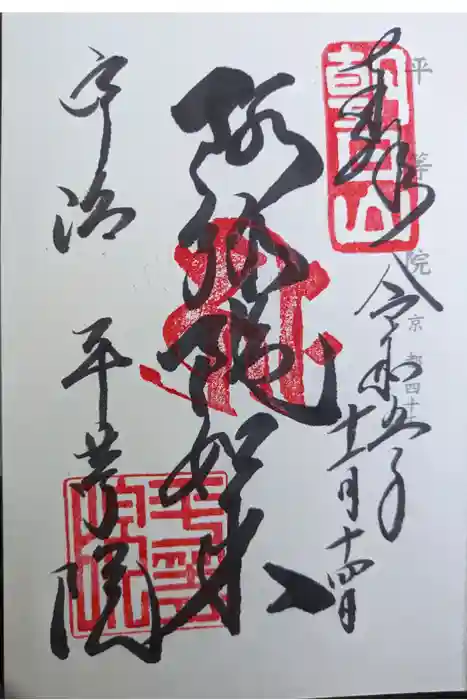 平等院 京都四十
朝日山
奉拝
令和五年
十一月十四日
阿弥陀如来
宇治 平等院